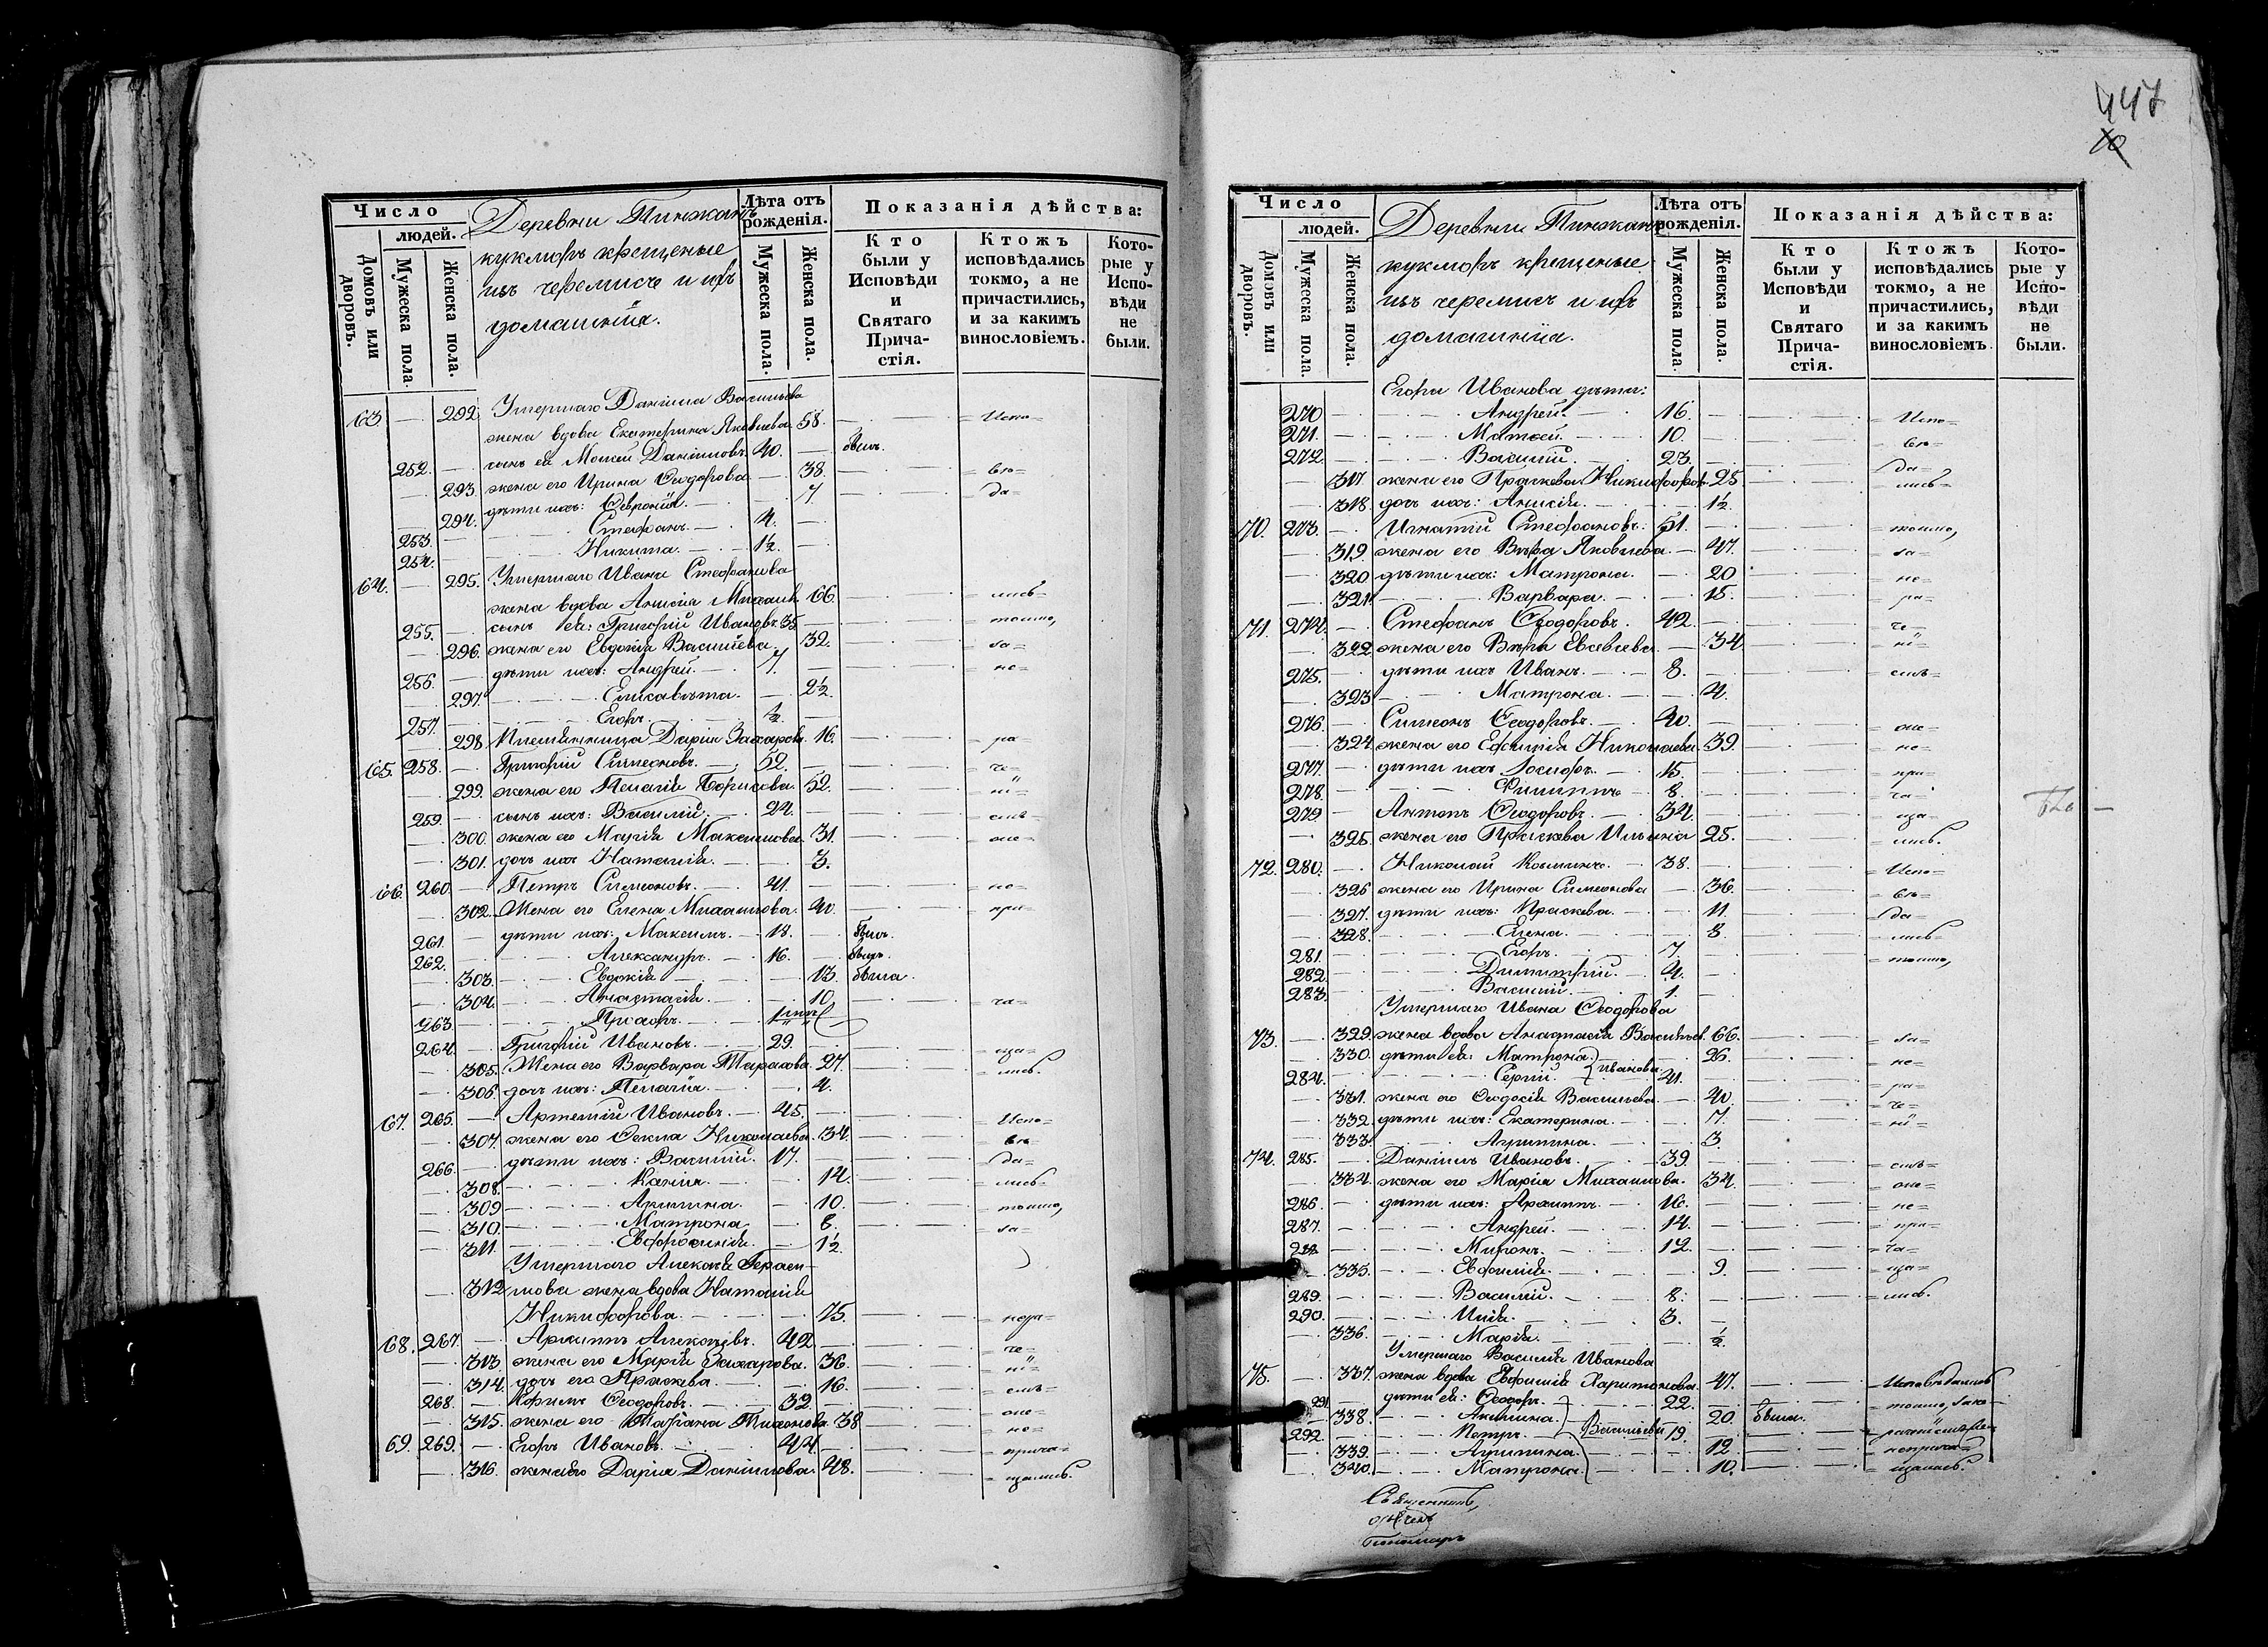 Число
людей.
Домовъ или дворовъ.
Мужеска пола.
Женска пола.
Деревни Пинжанъ
кукморъ крещеные
изъ черемисъ и ихъ
домашнія.
Лѣта отъ рожденія.
Мужеска пола.
Женска пола.
Показанія дѣйства:
Кто были у Исповѣди и Святаго Прича-стія.
Ктожъ исповѣдались токмо, а не причастились, и за какимъ винословіемъ.
Кото-рые у Испо-вѣди не были.
63 — 292. Умершаго Даніила Васильева
жена вдова Екатерина Яковлева 58. — Испо=
252. — сынъ ея Моисей Данииловъ. 40. — былъ.
— 293. жена его Ирина Сидорова — 38. — вѣ=
— 294. дѣти ихъ: Февронія. — 7 — да=
253. — Стефанъ. — 4. —
254. — Никита. — 1½ —
64. — 295. Умершаго Ивана Стефанова
жена вдова Анисія Михаил. 66. — лись=
255. — сынъ ея: Григорій Ивановъ. 35 — токмо,
— 296. жена его Евдокія Васильева. 32. — за=
256. — дѣти ихъ: Андрей. — 7. — не=
— 297. — Елисавѣта. — 2½
257. — Егоръ. — ½ —
— 298. Племянница Дарія Захаров. 16. — ра
65. 258. — Григорій Симеоновъ. — 52 — че=
— 299. жена его Пелагія Борисова. 52. — ні=
259. — сынъ ихъ: Василій. — 24. — емъ=
— 300. жена его Марія Максимова. 31. — оне=
— 301. дочь ихъ Наталія. — 3.
66. 260. — Петръ Симеоновъ. — 41. — не=
— 302. Жена его Елена Михаилова. 40. — при=
261. — дѣти ихъ: Максимъ. — 18. — былъ.
262. — Александръ. — 16. — былъ.
— 303. — Евдокія — 13. была.
— 304. — Анастасія. — 10 — ча=
263. — Прохоръ. —
264. — Григорій Ивановъ. — 29. —
— 305. Жена его Варвара Тарасова. 27. — ща=
— 306. дочь ихъ: Пелагія. — 4. — лись.
67. 265. — Артемій Ивановъ. — 45. — Испо=
— 307. жена его Фекла Николаева. 34. — вѣ=
266. — дѣти ихъ: Василій. 17. — да=
— 308. — 14. — лись=
— 309 — Акилина. — 10. — токмо,
— 310. — Матрона. — 6. — за=
— 311. — Евфросинія. — 1½
Умершаго Алексѣя Герасі-
— 312 мова жена вдова Наталія
Никифорова. — 75. — нера=
68. 267. — Архипъ Алексѣевъ. 42 — че=
— 313. жена его Марія Захарова. 36. — ні=
— 314. дочь его Праскева. — 16. — емъ=
268. — Ефимъ Феодоровъ. — 32. — оне=
— 315. жена его Татіана Тихонова 38 — не=
69. 269. — Егоръ Ивановъ. — 44. — прича=
— 316. жена его Дарія Даніилова. 48. — щались.
447
Число
людей.
Домовъ или дворовъ.
Мужеска пола.
Женска пола.
Деревни Пинжанъ
кукморъ крещеные
изъ черемисъ и ихъ
домашнія.
Лѣта отъ рожденія.
Мужеска пола.
Женска пола.
Показанія дѣйства:
Кто были у Исповѣди и Святаго Прича-стія.
Ктожъ исповѣдались токмо, а не причастились, и за какимъ винословіемъ.
Кото-рые у Испо-вѣди не были.
Егора Иванова дѣти:
270 — Андрей. — 16. — Испо=
271. — Матвей. — 10. — вѣ=
272. — Василій — 23. — да=
— 317 жена его Праскева Никифоров. 25 — лись=
— 318. дочь ихъ: Анисія. — 1½
70. 273. — Игнатій Стефановъ. 51. — токмо,
— 319. жена его Вѣра Яковлева. — 47. — за=
— 320 дѣти ихъ: Матрона. — 20 — не=
— 321 — Варвара. — 15. — ра=
71. 274. — Стефанъ Феодоровъ. 42. — че=
— 322. жена его Вѣра Евсевіева. — 34 — ні=
275. — дѣти ихъ Иванъ. — 8. — емъ=
— 323 — Матрона. — 4.
276. — Симеонъ Феодоровъ. — 40. — оне=
— 324. жена его Ефимія Николаева. 39. — не=
277. — дѣти ихъ Іосифъ. — 15. — при=
278. — Филиппъ — 8. — ча=
279 — Антонъ Феодоровъ. — 34. — ща=
— 325. жена его Праскева Ильина 25. — лись.
72. 280. — Николай Козминъ. — 38. — Испо=
— 326 жена его Ирина Симеонова — 36. — вѣ=
— 327. дѣти ихъ: Праскева. — 11. — да=
— 328. — Елена. — 8. — лись=
281. — Егоръ. — 7. — токмо,
282. — Димитрій. — 4. —
283. — Василій. — 1. —
Умершаго Ивана Феодорова
73. — 329. жена вдова Анастасія Васильев. 66. — за=
— 330. дѣти ея: Матрона. } Ивановы 26. — не=
284. — Сергій. } 41. — ра=
— 331. жена его Феодосія Васильева. — 40. — че=
— 332. дѣти ихъ: Екатерина. — 7. — ні=
— 333. — Агрипина. — 3.
74. 285. — Даніилъ Ивановъ. — 39. — емъ=
— 334. жена его Марія Михаилова. 34. — оне=
286. — дѣти ихъ: Архиппъ. — 16. — не=
287. — Андрей. — 14. — при=
288. — Миронъ. — 12. — ча=
— 335. — Евфимія. — 9. — ща=
289. — Василій. — 8. — лись.
290. — Илія. — 3. —
— 336. — Марія. — ½
Умершаго Василія Иванова
75. — 337. жена вдова Евфимія Харитонова. 47. — Исповѣдались
291 — дѣти ея: Феодоръ. — 22. — токмо, зане=
— 338. — Акилина. } Васильевы 20. была.
292. — Петръ. — 19. — раченіемъ не=
— 339. — Агрипина. — 12. — неприча=
— 340. — Матрона. — 10. — щались.
Священникъ,
Пономарь